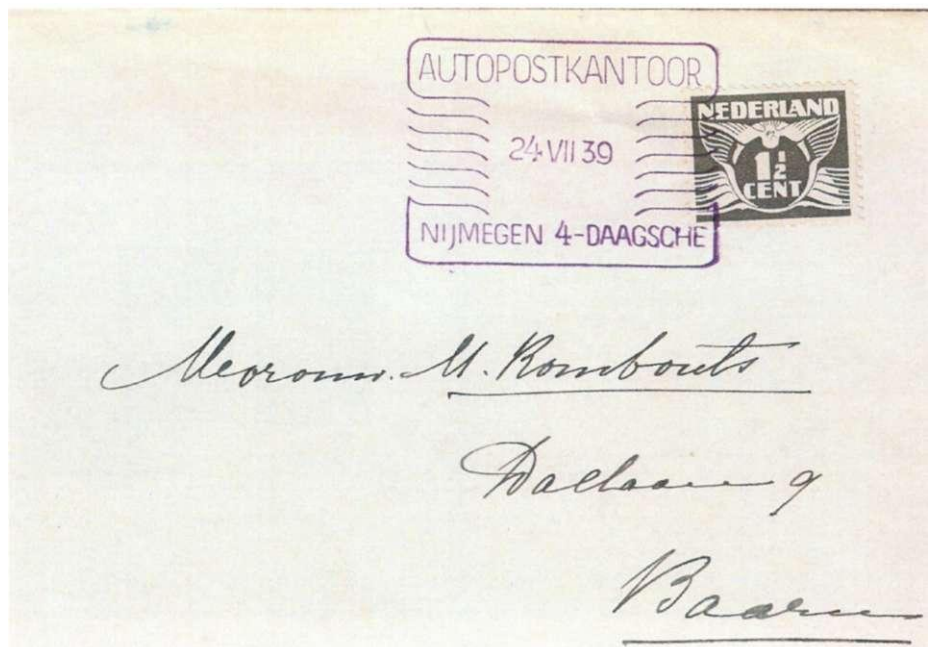 AUTOPOSTKANTOOR
24 VII 39
NIJMEGEN 4-DAAGSCHE
NEDERLAND
1½
CENT
Mevrouw. M. Rombouts
Daellaan 9
Baarn